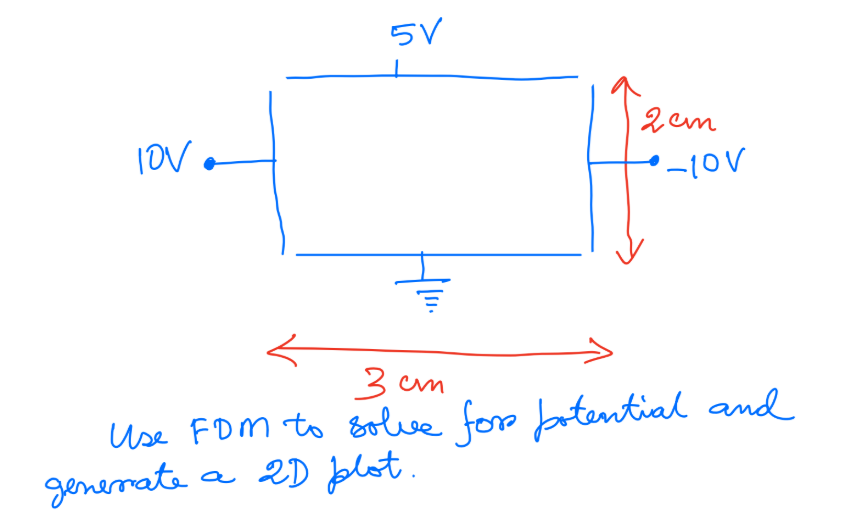 5V
2 cm
10V
-10V
3 cm
Use FDM to solve for potential and
generate a 2D plot.